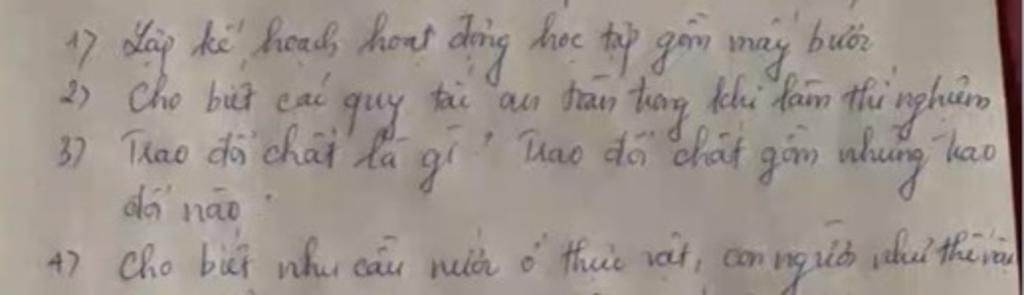 1) Lập kế hoạch hoạt động học tập gồm mấy bước
2) Cho biết các quy tắc an toàn trong khi làm thí nghiệm
3) Trao đổi chất là gì? Trao đổi chất gồm những trao
đổi nào.
4) Cho biết nhu cầu nước ở thực vật, con người như thế nào